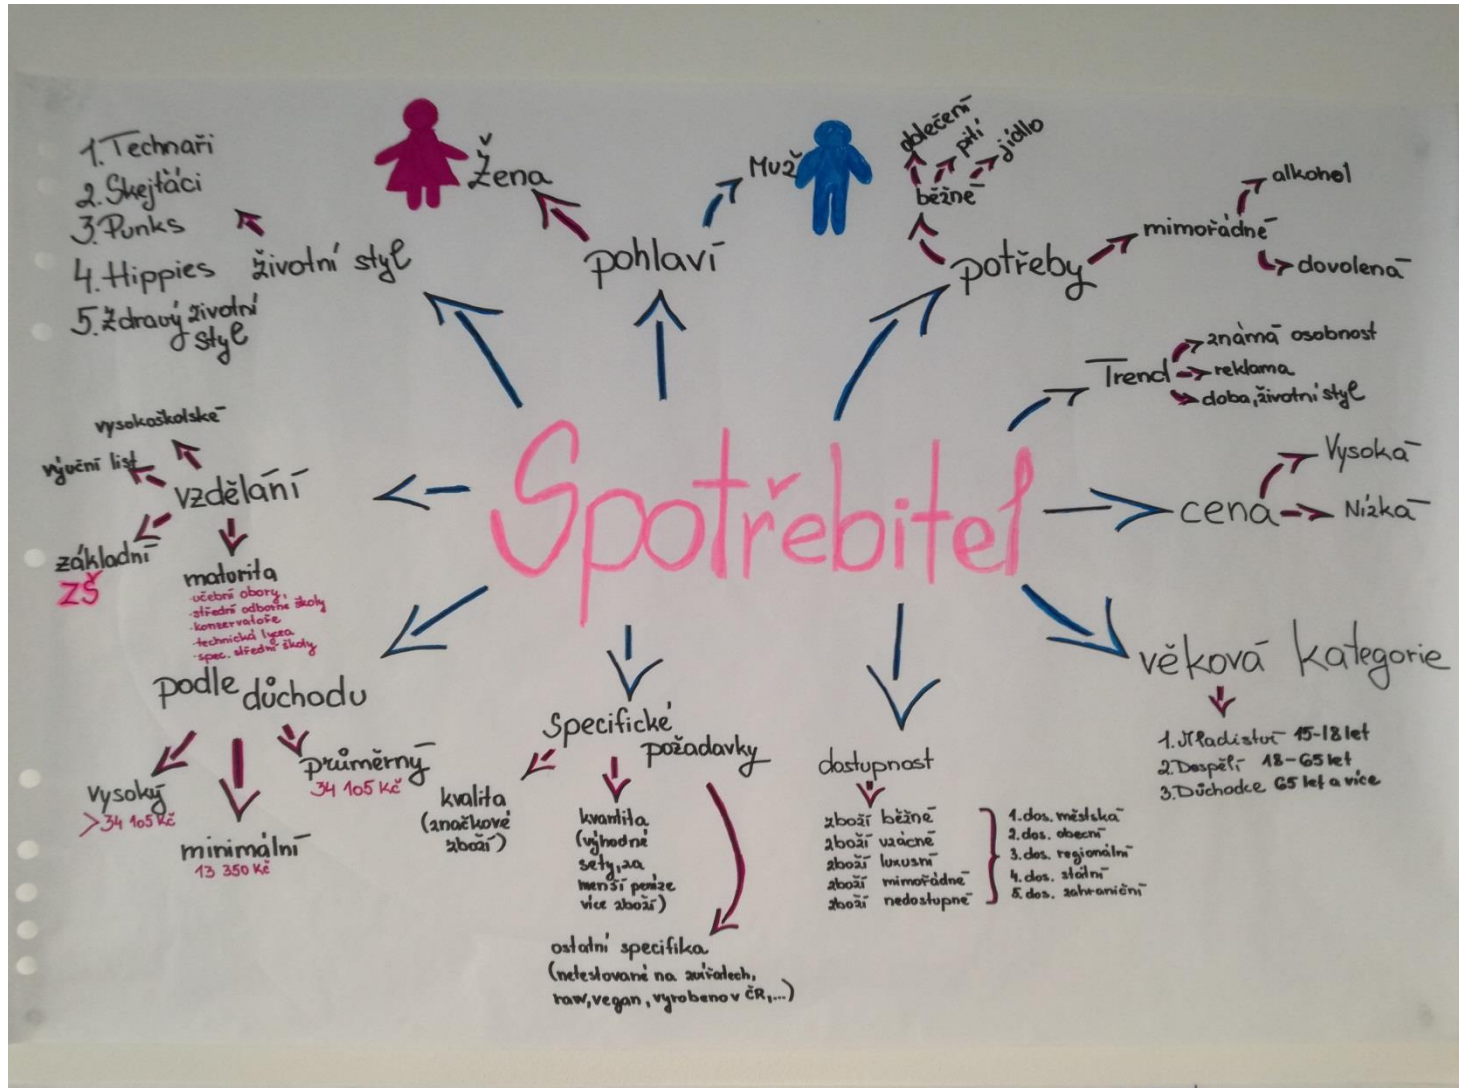 Spotřebitel
životní styl
1. Technaři
2. Skejťáci
3. Punks
4. Hippies
5. Zdravý životní
styl
pohlaví
Žena
Muž
potřeby
běžné
oblečení
pití
jídlo
mimořádné
alkohol
dovolená
Trend
známá osobnost
reklama
doba, životní styl
cena
Vysoká
Nízká
věková kategorie
1. Mladiství 15-18 let
2. Dospělí 18-65 let
3. Důchodce 65 let a více
dostupnost
zboží běžné
zboží vzácné
zboží luxusní
zboží mimořádné
zboží nedostupné
1. dos. městská
2. dos. obecní
3. dos. regionální
4. dos. státní
5. dos. zahraniční
Specifické
požadavky
kvalita
(značkové
zboží)
kvantita
(výhodné
sety, za
menší peníze
více zboží)
ostatní specifika
(netestované na zvířatech,
raw, vegan, vyrobeno v ČR,...)
podle důchodu
vysoký
>34 105 Kč
minimální
13 350 Kč
průměrný
34 105 Kč
vzdělání
vysokoškolské
výuční list
základní
ZŠ
maturita
-učební obory,
-střední odborné školy
-konzervatoře
-technická lycea
-spec. střední školy